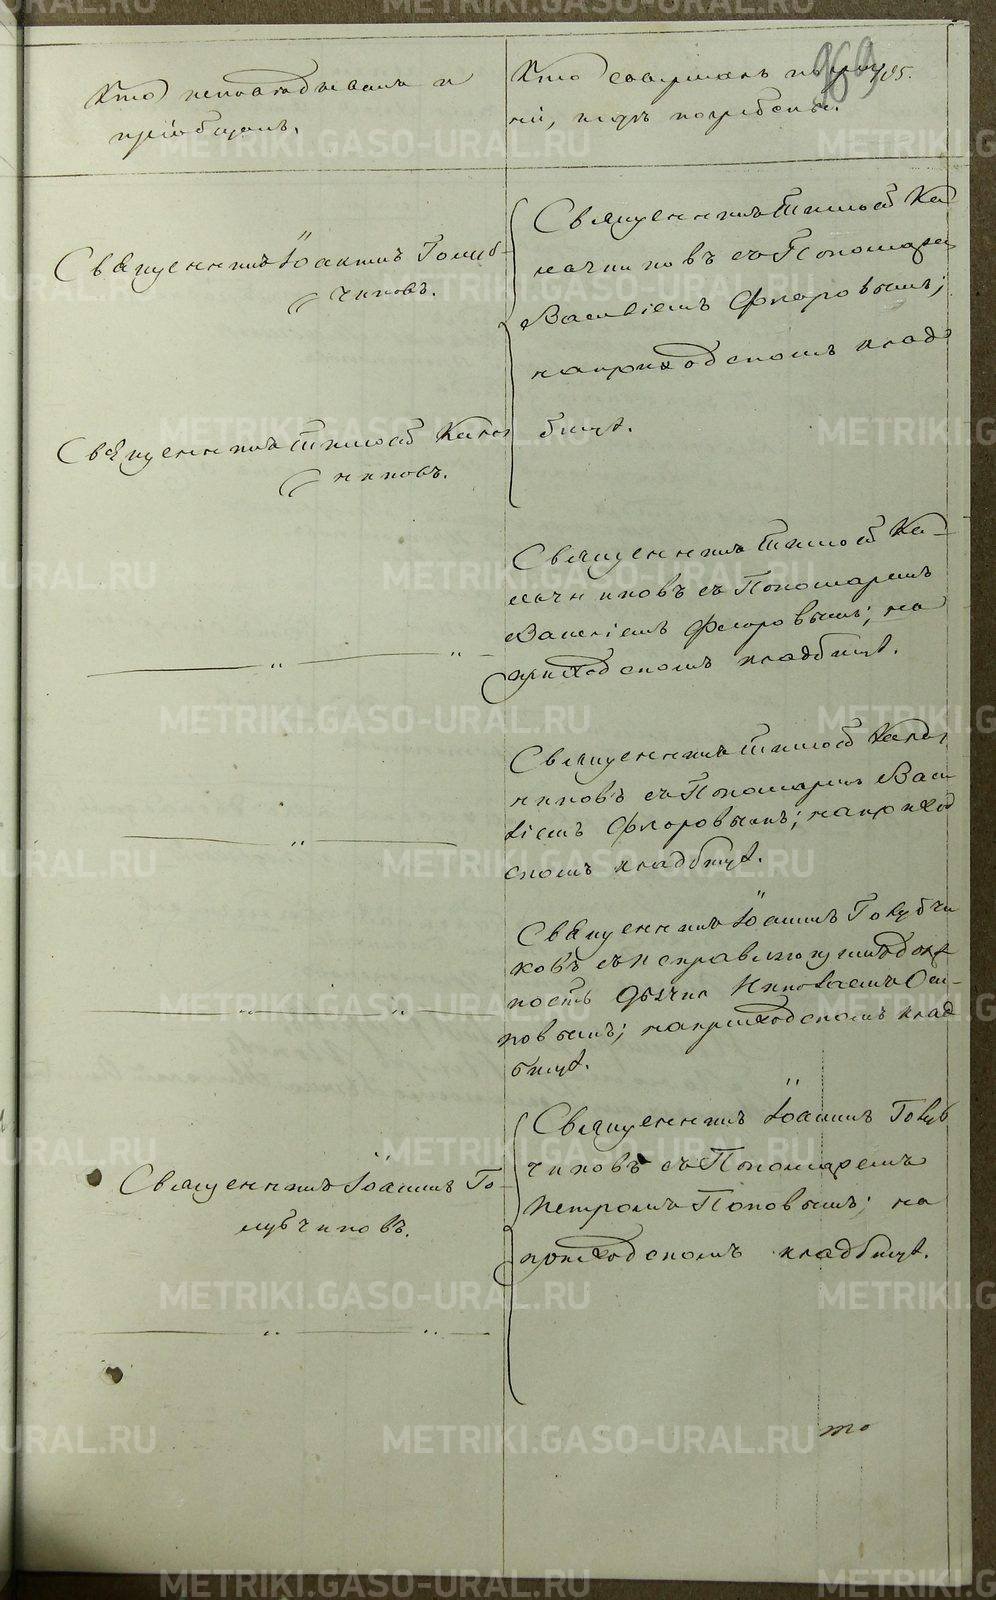 Кто исповѣдывалъ и
пріобщалъ.
Кто совершалъ погре
ній, и гдѣ погребены.
369
Священникъ Іоаннъ Голуб-
чиковъ.
Священникъ Тимоѳей Ка
лачниковъ съ Пономаремъ
Василіемъ Флоровымъ;
на приходскомъ клад
бищѣ.
Священникъ Тимоѳей Калач
никовъ.
Священникъ Тимоѳей Ка-
лачниковъ съ Пономаремъ
Василіемъ Флоровымъ; на
приходскомъ кладбищѣ.
Священникъ Тимоѳей Калач
никовъ съ Пономаремъ Васи
ліемъ Флоровымъ; на приход
скомъ кладбищѣ.
Священникъ Іоаннъ Голубчи
ковъ съ исправляющимъ долж
ность Дьячка Николаемъ Оси-
повымъ; на приходскомъ клад
бищѣ.
Священникъ Іоаннъ Го-
лубчиковъ.
Священникъ Іоаннъ Голуб
чиковъ съ Пономаремъ
Петромъ Поповымъ; на
приходскомъ кладбищѣ.
то
METRIKI.GASO-URAL.RU